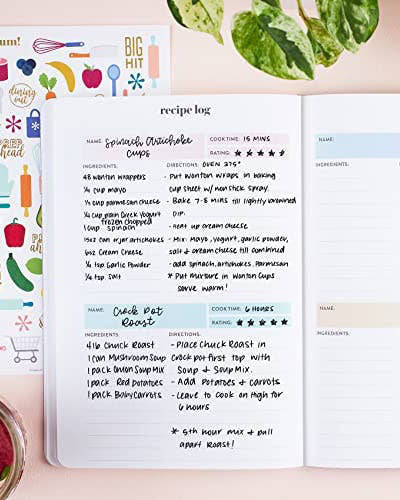 um!
BIG
HIT
dining
out
PREP
ahead
recipe log
NAME: Spinach Artichoke
Cups
COOK TIME: 15 MINS
RATING:
INGREDIENTS:
48 wonton wrappers
1/4 cup mayo
1/4 cup parmesan cheese
1/4 cup plain Greek Yogurt
frozen chopped
1 cup spinach
15oz can or jar artichokes
6oz Cream Cheese
1/4 tsp Garlic Powder
1/4 tsp Salt
DIRECTIONS: OVEN 375°
- Put wonton wraps in baking
cup sheet w/ nonstick spray.
- Bake 7-8 mins till lightly browned
Dip:
- heat up cream cheese
- Mix: Mayo, yogurt, garlic powder,
salt & cream cheese till combined
- add spinach, artichokes, Parmesan
* Put mixture in Wonton Cups
serve warm!
NAME: Crock Pot
Roast
COOK TIME: 6 HOURS
RATING:
INGREDIENTS:
4 lb Chuck Roast
1 can Mushroom Soup
1 pack Onion Soup Mix
1 pack Red Potatoes
1 pack Baby Carrots
DIRECTIONS:
- Place Chuck Roast in
Crock pot first top with
Soup & Soup Mix.
- Add Potatoes & Carrots
- Leave to cook on high for
6 hours
* 5th hour mix & pull
apart Roast!
NAME:
INGREDIENTS:
NAME:
INGREDIENTS: